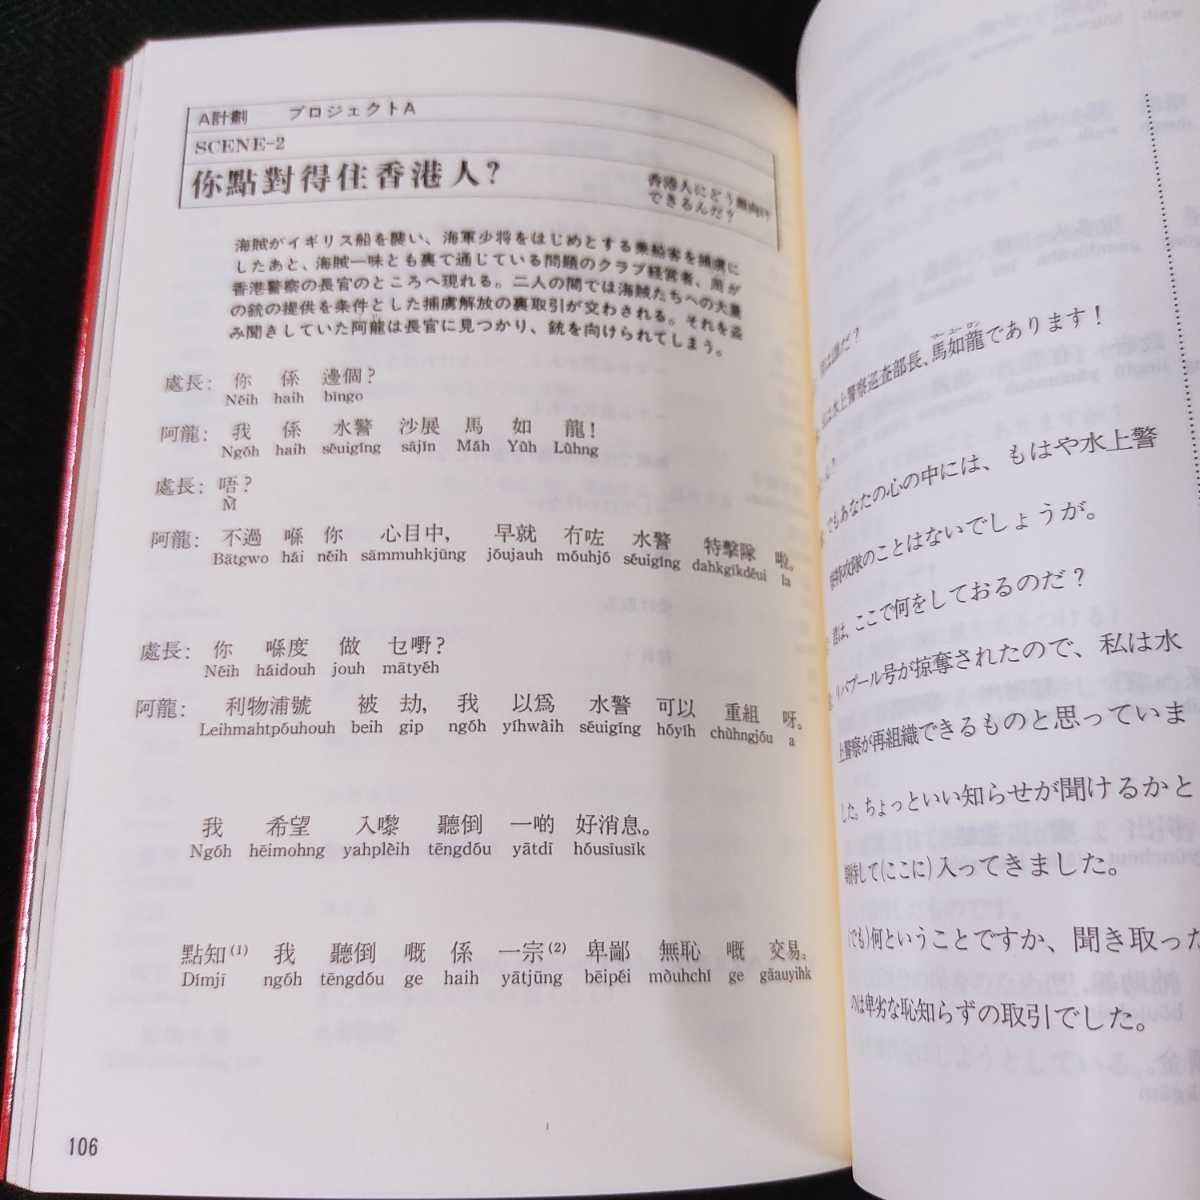 A計劃 プロジェクトA
SCENE-2
你點對得住香港人?
香港人にどう顔向け
できるんだ?
海賊がイギリス船を襲い、海軍少将をはじめとする乗船客を捕虜に
したあと、海賊一味とも裏で通じている問題のクラブ経営者、周が
香港警察の長官のところへ現れる。二人の間では海賊たちへの大量
の銃の提供を条件とした捕虜解放の裏取引が交わされる。それを盗
み聞きしていた阿龍は長官に見つかり、銃を向けられてしまう。
處長: 你 係 邊個?
Néih haih bīngo
阿龍: 我 係 水警 沙展 馬 如 龍!
Ngóh haih séuigíng sājín Máh Yùh Lùhng
處長: 唔?
M̀
阿龍: 不過 喺 你 心目中, 早就 冇咗 水警 特擊隊 啦。
Bātgwo hái néih sāmmuhkjūng jóujauh móuhjó séuigíng dahkgīkdéui la
處長: 你 喺度 做 乜嘢?
Néih háidouh jouh mātyéh
阿龍: 利物浦號 被 劫, 我 以爲 水警 可以 重組 呀。
Leihmahtpóuhouh beih gip ngóh yíhwàih séuigíng hóyíh chùhngjóu a
我 希望 入嚟 聽倒 一啲 好消息。
Ngóh hēimohng yahplèih tēngdóu yātdī hóusīusīk
點知(1) 我 聽倒 嘅 係 一宗(2) 卑鄙 無恥 嘅 交易。
Dímjī ngóh tēngdóu ge haih yātjūng bēipéi mòuhchí ge gāauyihk
106
馬如龍であります!
水上警察巡査部長、
でもあなたの心の中には、もはや水上警
特攻隊のことはないでしょうが。
君は、ここで何をしておるのだ?
リバプール号が掠奪されたので、私は水
上警察が再組織できるものと思っていま
した。ちょっといい知らせが聞けるかと
期待して(ここに)入ってきました。
(でも)何ということですか、聞き取った
のは卑劣な恥知らずの取引でした。